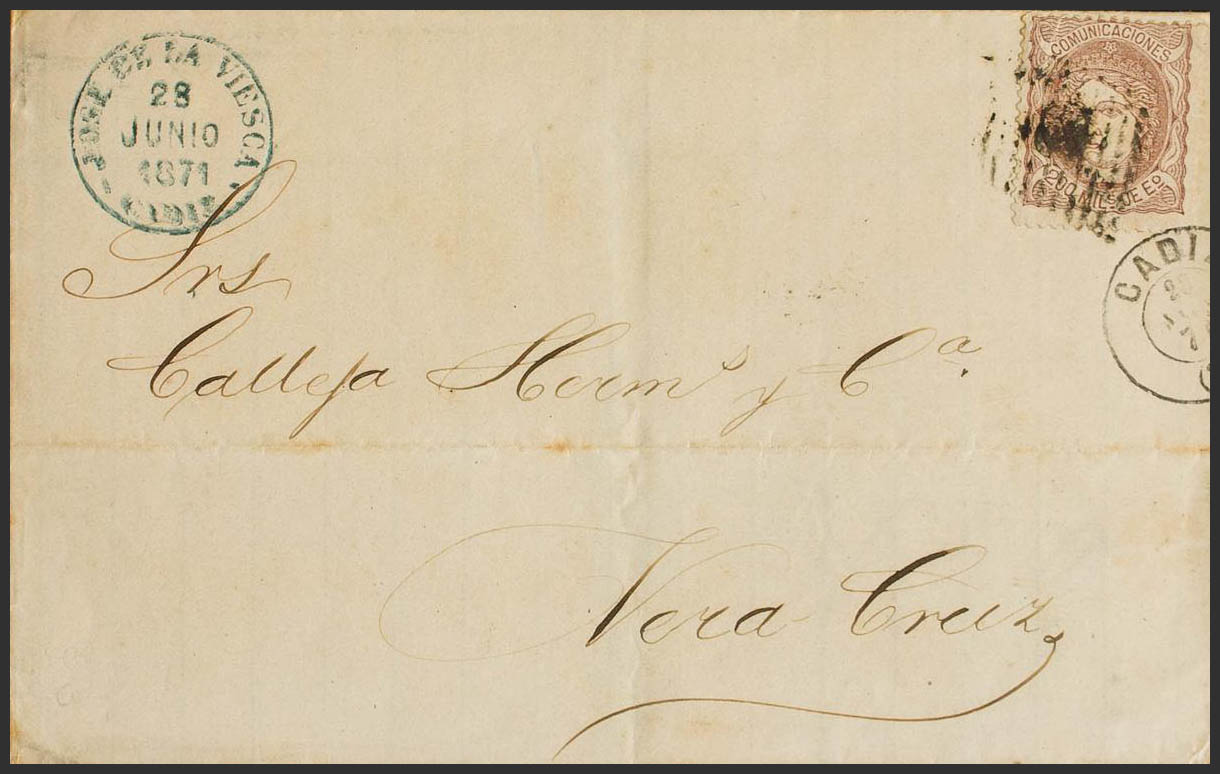 JOSE DE LA VIESCA
28
JUNIO
1871
CADIZ
COMUNICACIONES
200 MILS DE EO
CADIZ
Srs
Calleja Herms y Ca.
Vera Cruz